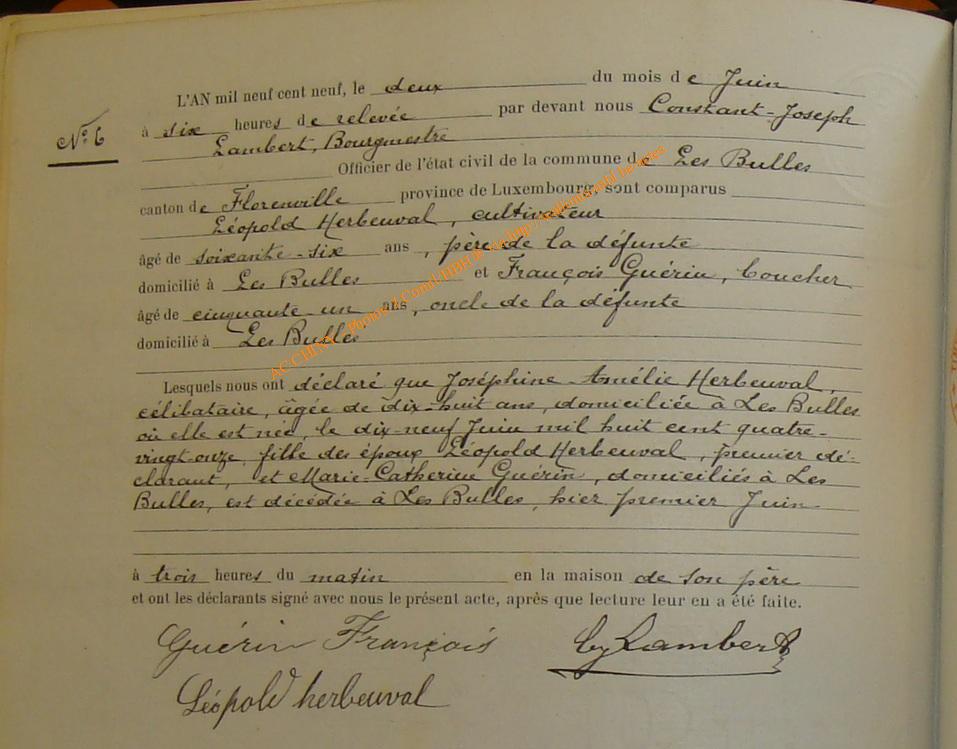 N° 6
L'AN mil neuf cent neuf, le deux du mois de Juin
à six heures de relevée par devant nous Constant-Joseph
Lambert, Bourgmestre
Officier de l'état civil de la commune de Les Bulles
canton de Florenville province de Luxembourg, sont comparus
Léopold Herbeuval, cultivateur
âgé de soixante-six ans, père de la défunte
domicilié à Les Bulles et François Guérin, boucher
âgé de cinquante-un ans, oncle de la défunte
domicilié à Les Bulles
Lesquels nous ont déclaré que Joséphine-Amélie Herbeuval,
célibataire, âgée de dix-huit ans, domiciliée à Les Bulles
où elle est née, le dix-neuf Juin mil huit cent quatre-
vingt-onze, fille des époux Léopold Herbeuval, premier dé-
clarant, et Marie-Catherine Guérin, domiciliés à Les
Bulles, est décédée à Les Bulles, hier premier Juin
à trois heures du matin en la maison de son père
et ont les déclarants signé avec nous le présent acte, après que lecture leur en a été faite.
Guérin François Lambert
Léopold herbeuval